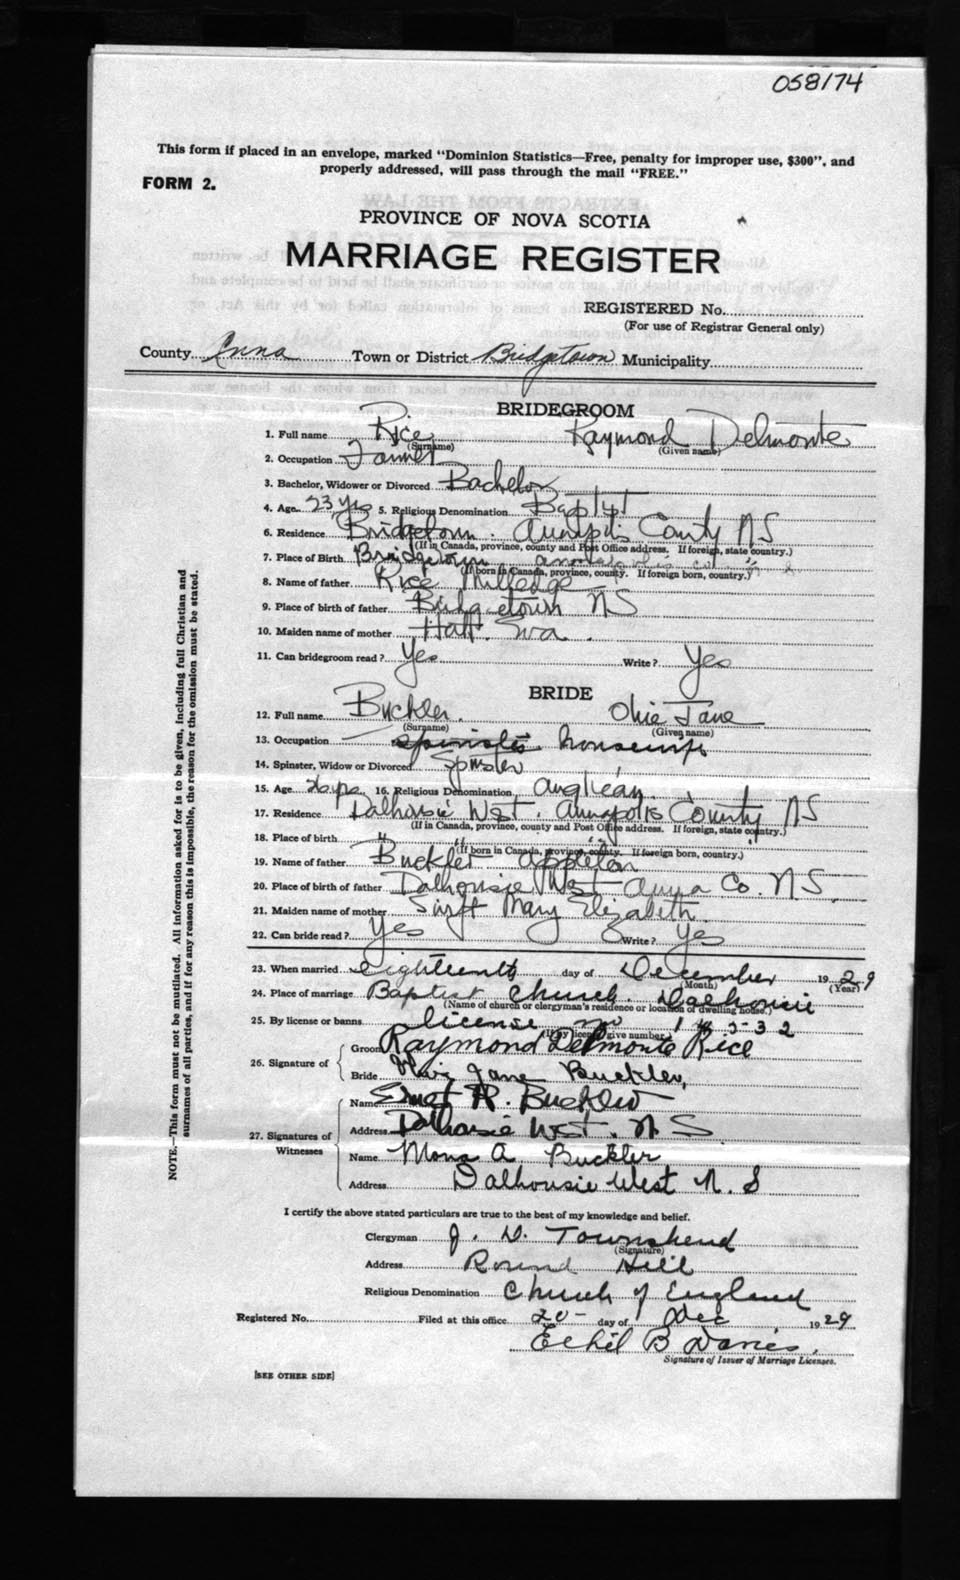 058174
This form if placed in an envelope, marked "Dominion Statistics—Free, penalty for improper use, $300", and
properly addressed, will pass through the mail "FREE."
FORM 2.
PROVINCE OF NOVA SCOTIA
MARRIAGE REGISTER
REGISTERED No.
(For use of Registrar General only)
County Anna Town or District Bridgetown Municipality
BRIDEGROOM
1. Full name Rice Raymond Delmonte
(Surname) (Given name)
2. Occupation Farmer
3. Bachelor, Widower or Divorced Bachelor
4. Age 23 yrs 5. Religious Denomination Baptist
6. Residence Bridgetown. Annapolis County NS
(If in Canada, province, county and Post Office address. If foreign, state country.)
7. Place of Birth Bridgetown Annapolis Co.
(If born in Canada, province, county. If foreign born, country.)
8. Name of father Rice Milledge
9. Place of birth of father Bridgetown NS
10. Maiden name of mother
11. Can bridegroom read? Yes Write? Yes
BRIDE
12. Full name Buckler. Jane
(Surname) (Given name)
13. Occupation spinster housewife
14. Spinster, Widow or Divorced Spinster
15. Age 16. Religious Denomination Anglican
17. Residence Dalhousie West. Annapolis County NS
(If in Canada, province, county and Post Office address. If foreign, state country.)
18. Place of birth " " " "
(If born in Canada, province, county. If foreign born, country.)
19. Name of father Buckler Appleton
20. Place of birth of father Dalhousie West Anna Co. NS
21. Maiden name of mother Swift Mary Elizabeth
22. Can bride read? Yes Write? Yes
23. When married eighteenth day of December 1929
(Month) (Year)
24. Place of marriage Baptist Church. Dalhousie
(Name of church or clergyman's residence or location of dwelling house.)
25. By license or banns license no
(If by license give number)
26. Signature of
Groom Raymond Delmonte Rice
Bride Jane Buckler,
27. Signatures of Witnesses
Name Ernest R. Buckler
Address Dalhousie West. N. S
Name Mona A Buckler
Address Dalhousie West N. S
I certify the above stated particulars are true to the best of my knowledge and belief.
Clergyman J. D. Townshend
(Signature)
Address Round Hill
Religious Denomination Church of England
Registered No. Filed at this office 20- day of Dec 1929
Ethel B Davies.
Signature of Issuer of Marriage Licenses.
[SEE OTHER SIDE]
NOTE.—This form must not be mutilated. All information asked for is to be given, including full Christian and
surnames of all parties, and if for any reason this is impossible, the reason for the omission must be stated.